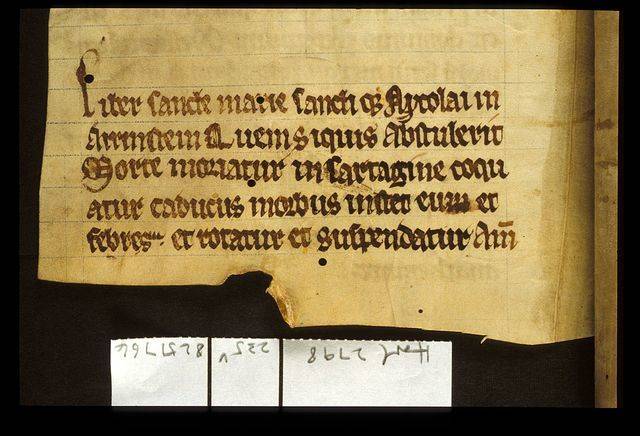 Liber sancte marie sancti q3 Nycolai in
Arrinstein Quem siquis abstulerit
Morte moriatur in sartagine coqu
atur caducus morbus instet eum et
febres et rotatur et suspendatur Am̅
Harl 2798
225v
8251766